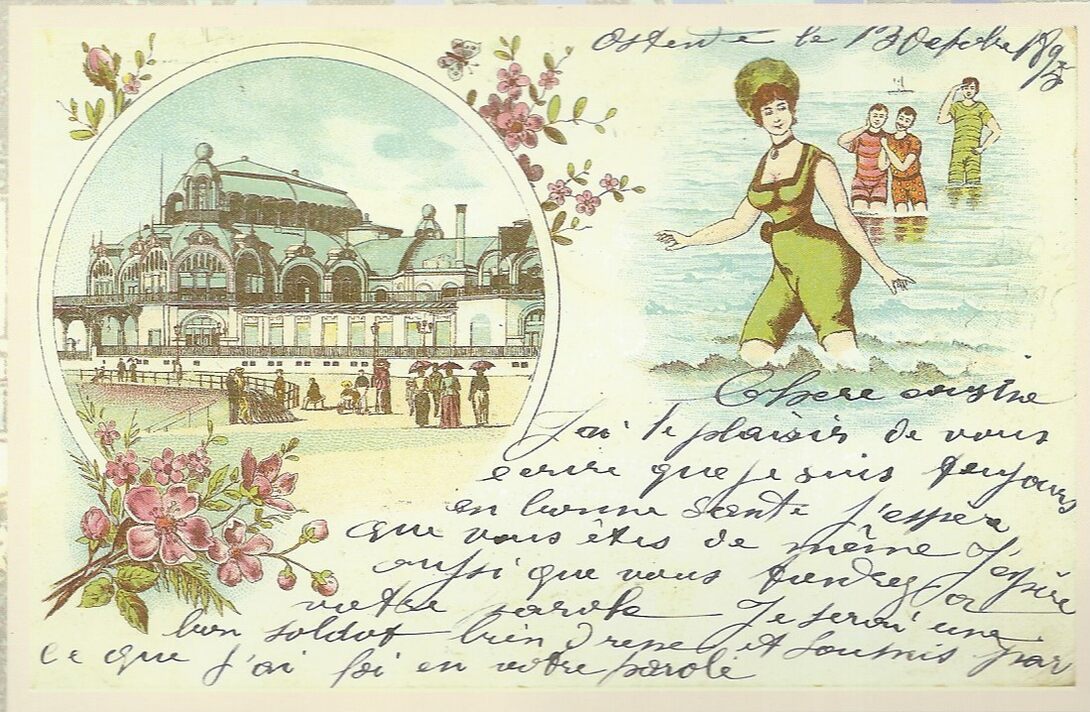 Ostende le 13 Octobre 189
Chere cousine
J'ai le plaisir de vous
ecrire que je suis toujours
en bonne santé j'espère
que vous êtes de même J'espère
aussi que vous tendrez
votre parole Je serai un
bon soldat bien et soumis par
ce que j'ai foi en votre parole